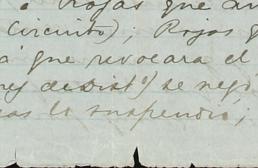 á Rojas que
Circuito); Rojas q
á que revocara el
rey de Dist°) se negó
as lo suspendió;